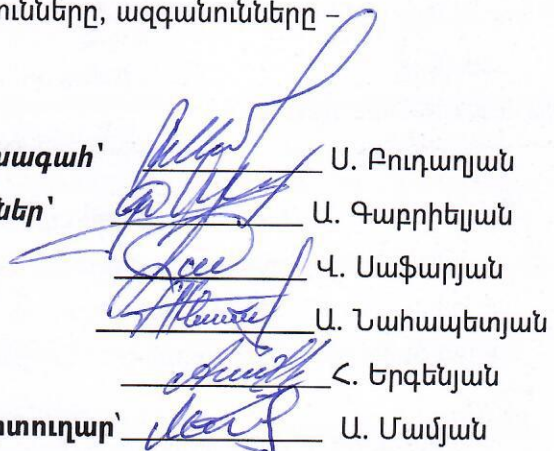 ունները, ազգանունները –
ագահ՝ Ս. Բուդաղյան
ներ՝ Ա. Գաբրիելյան
Վ. Սաֆարյան
Ա. Նահապետյան
Հ. Երգենյան
րտուղար՝ Ա. Մամյան